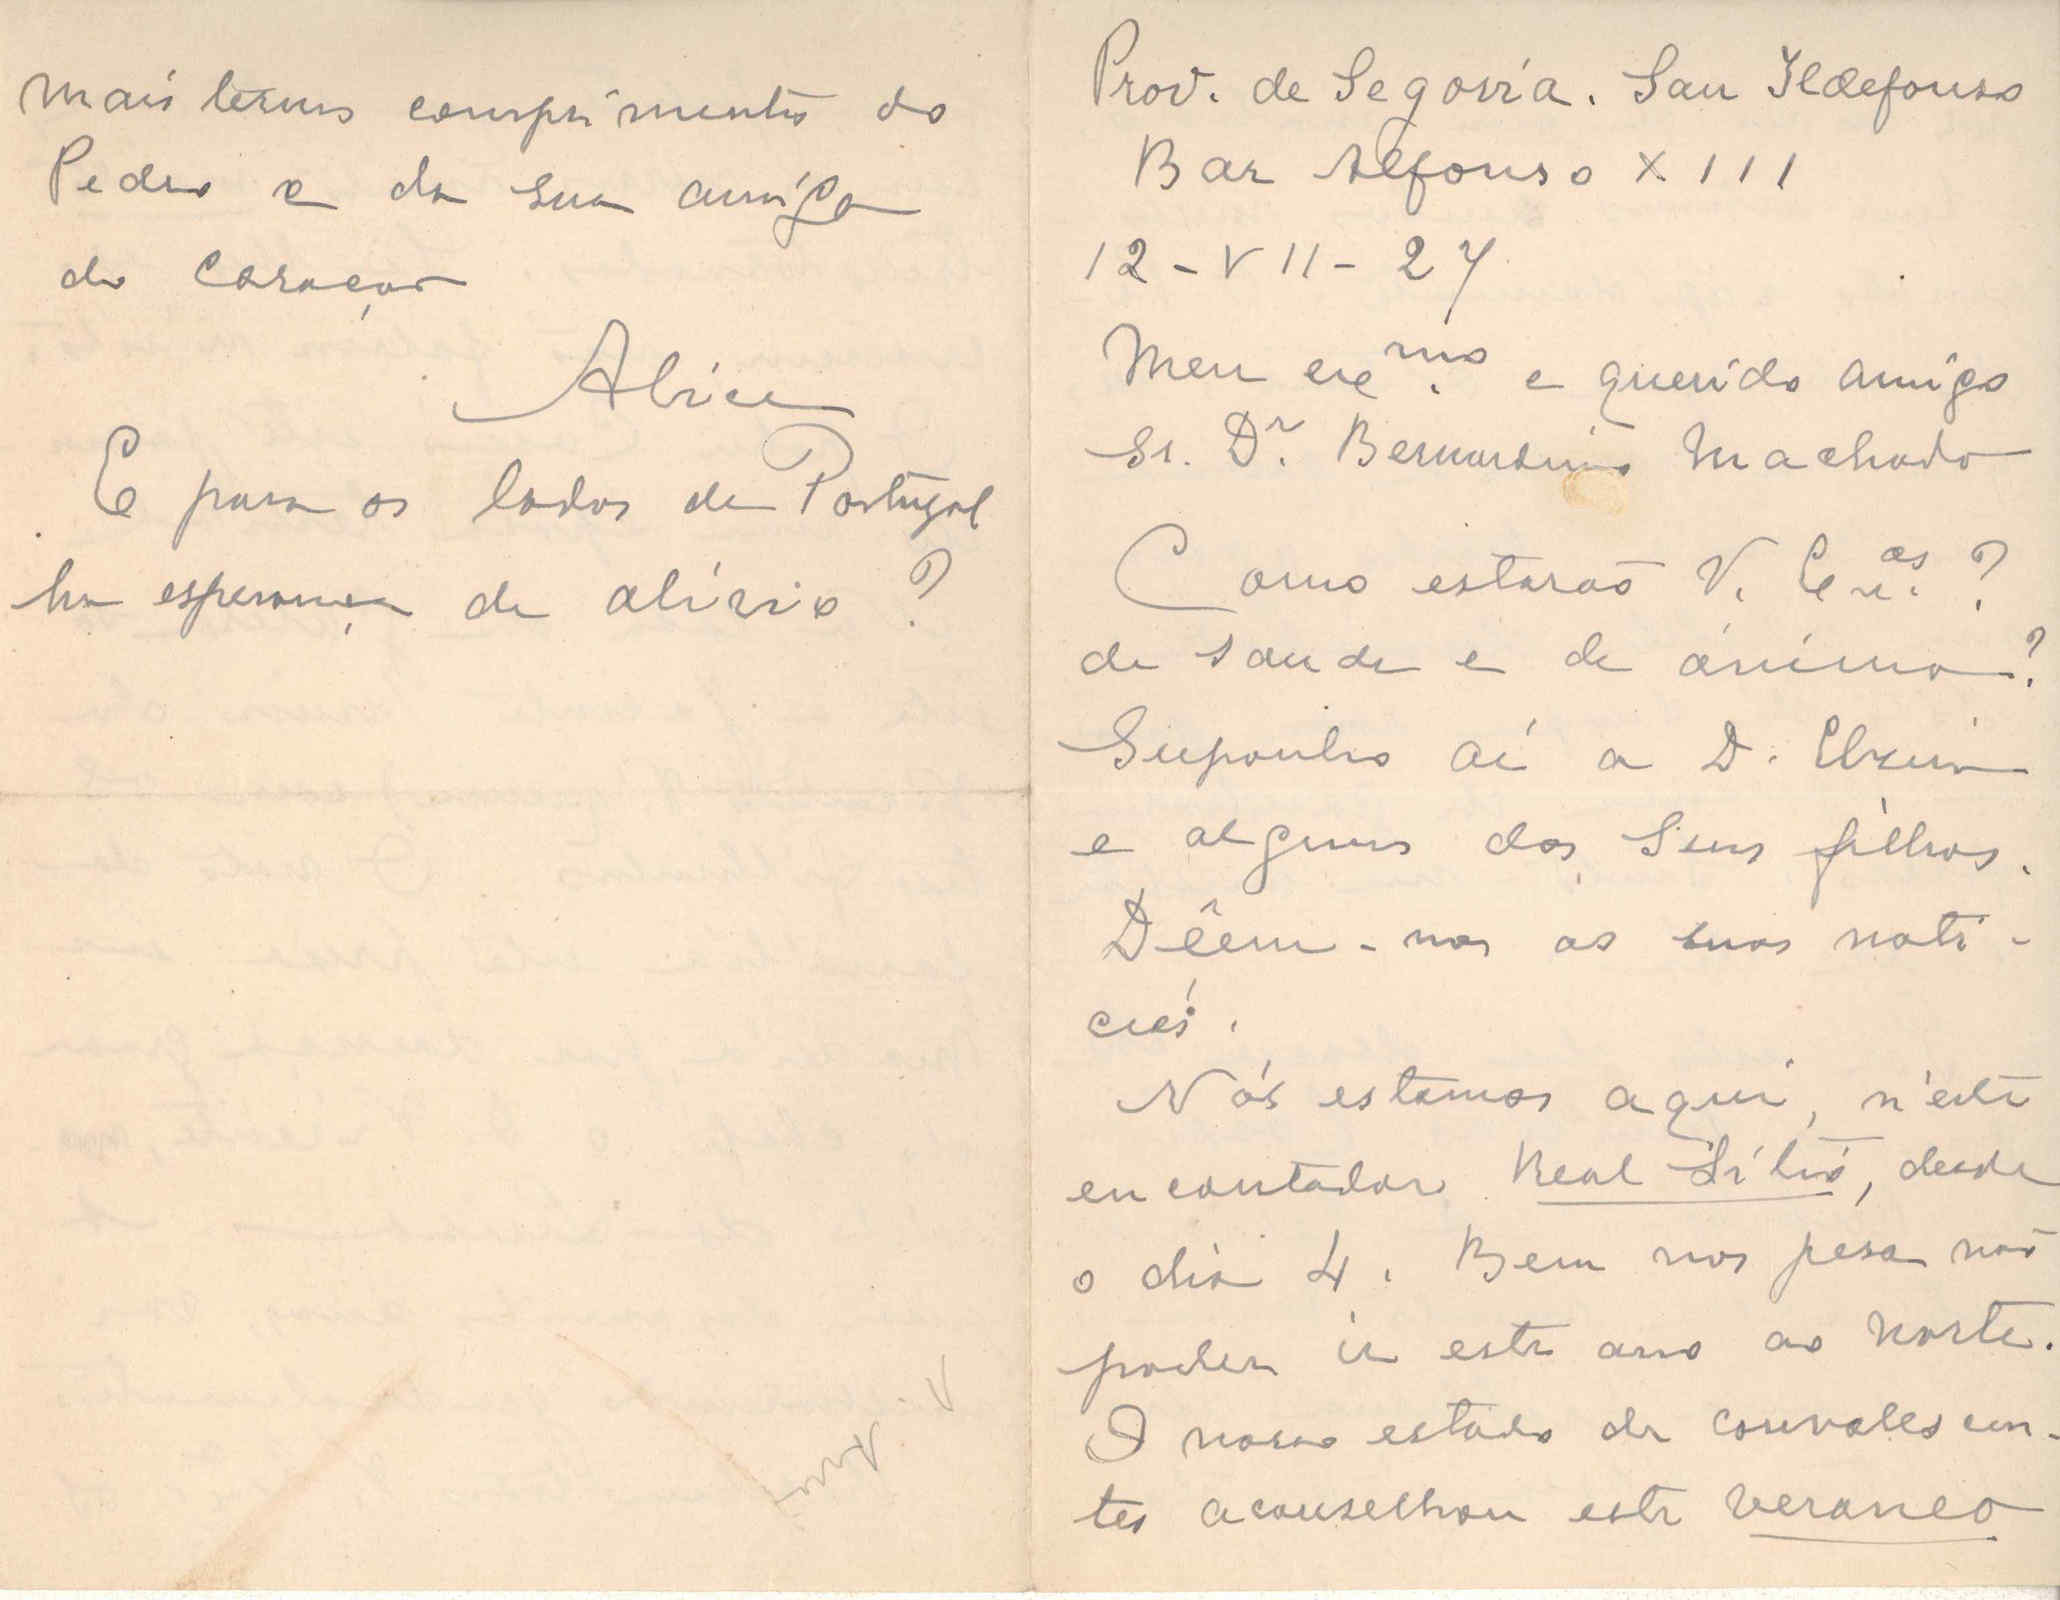 Prov. de Segovia. San Ildefonso
Bar Alfonso XIII
12-VII-27
Meu exc.mo e querido amigo
Sr. Dr. Bernardino Machado
Como estarão V. Ex.as?
de saude e de ánimo?
Suponho aí a D. Elzira
e alguns dos seus filhos.
Dêem-nos as suas notí-
cias.
Nós estamos aqui, n'este
encantador Real Sítio, desde
o dia 4. Bem nos pesa não
poder ir este ano ao Norte.
O nosso estado de convalescen-
tes aconselhou este veraneo
mais ternos comprimentos do
Pedro e da sua amiga
do coração
Alice
E para os lados de Portugal
ha esperança de alívio?